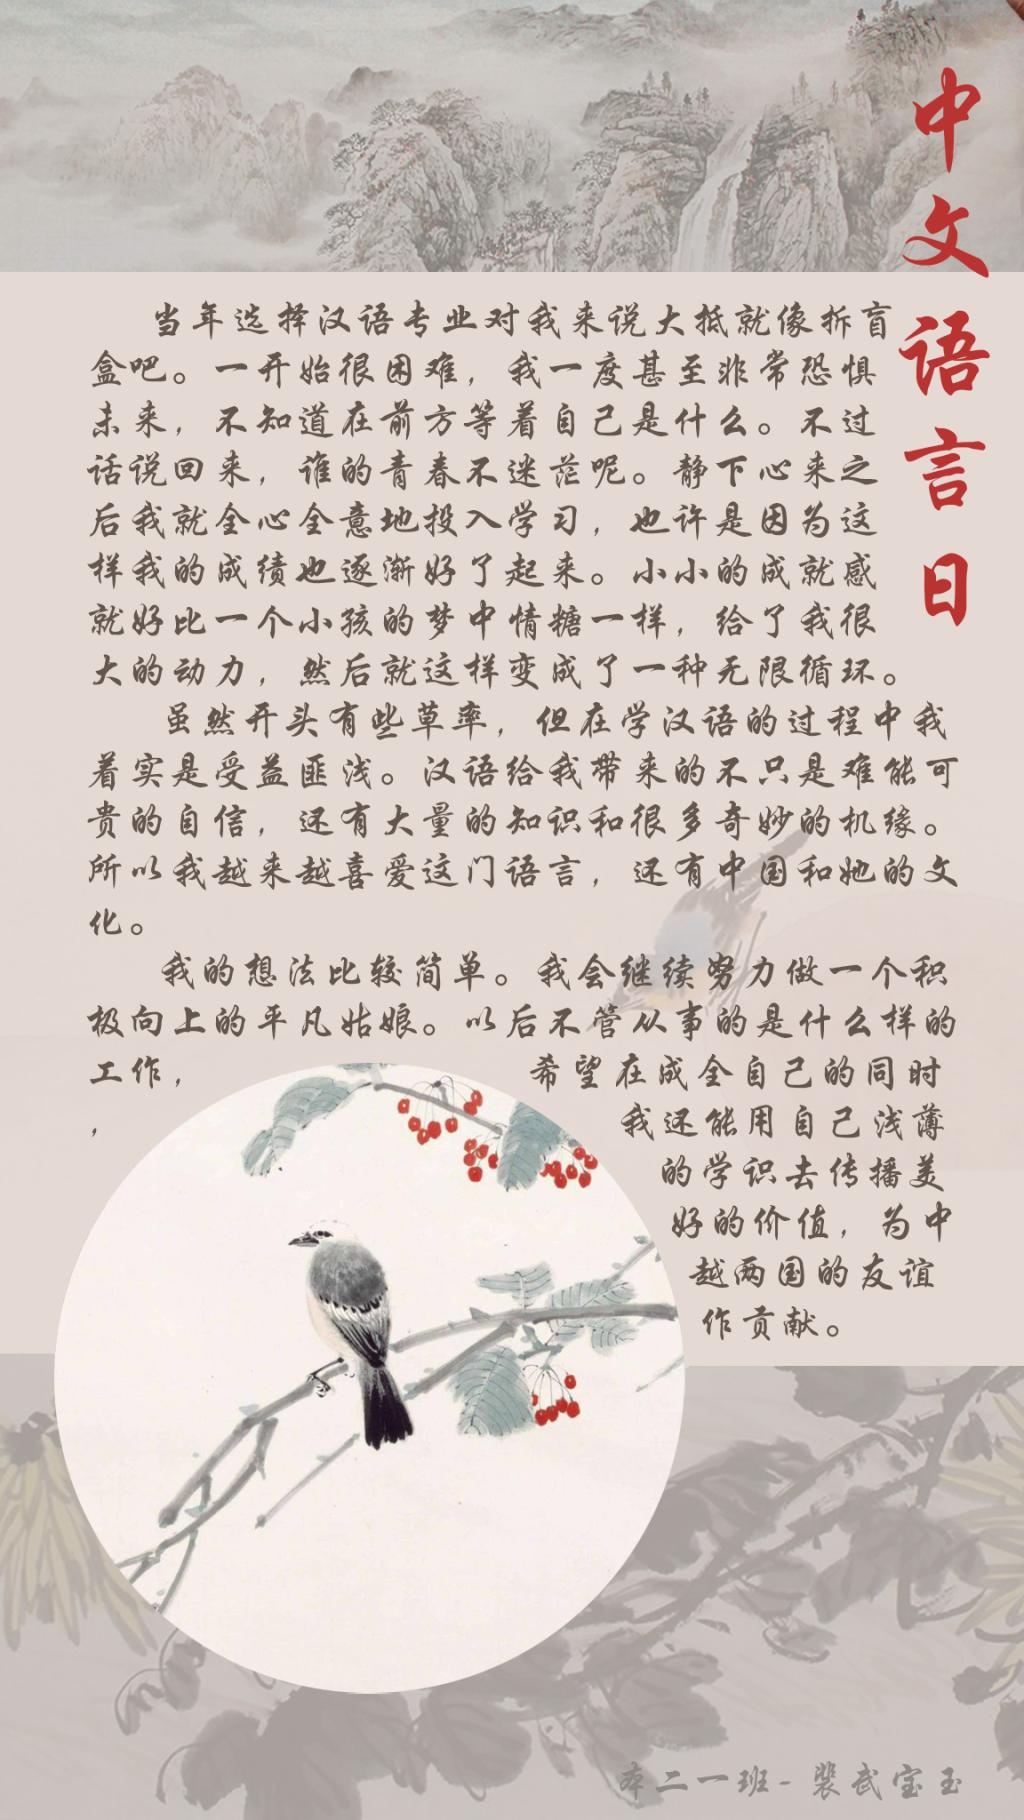 中文语言日
当年选择汉语专业对我来说大抵就像拆盲
盒吧。一开始很困难，我一度甚至非常恐惧
未来，不知道在前方等着自己是什么。不过
话说回来，谁的青春不迷茫呢。静下心来之
后我就全心全意地投入学习，也许是因为这
样我的成绩也逐渐好了起来。小小的成就感
就好比一个小孩的梦中情糖一样，给了我很
大的动力，然后就这样变成了一种无限循环。
虽然开头有些草率，但在学汉语的过程中我
着实是受益匪浅。汉语给我带来的不只是难能可
贵的自信，还有大量的知识和很多奇妙的机缘。
所以我越来越喜爱这门语言，还有中国和她的文
化。
我的想法比较简单。我会继续努力做一个积
极向上的平凡姑娘。以后不管从事的是什么样的
工作，希望在成全自己的同时
，我还能用自己浅薄
的学识去传播美
好的价值，为中
越两国的友谊
作贡献。
本二一班-裴武宝玉